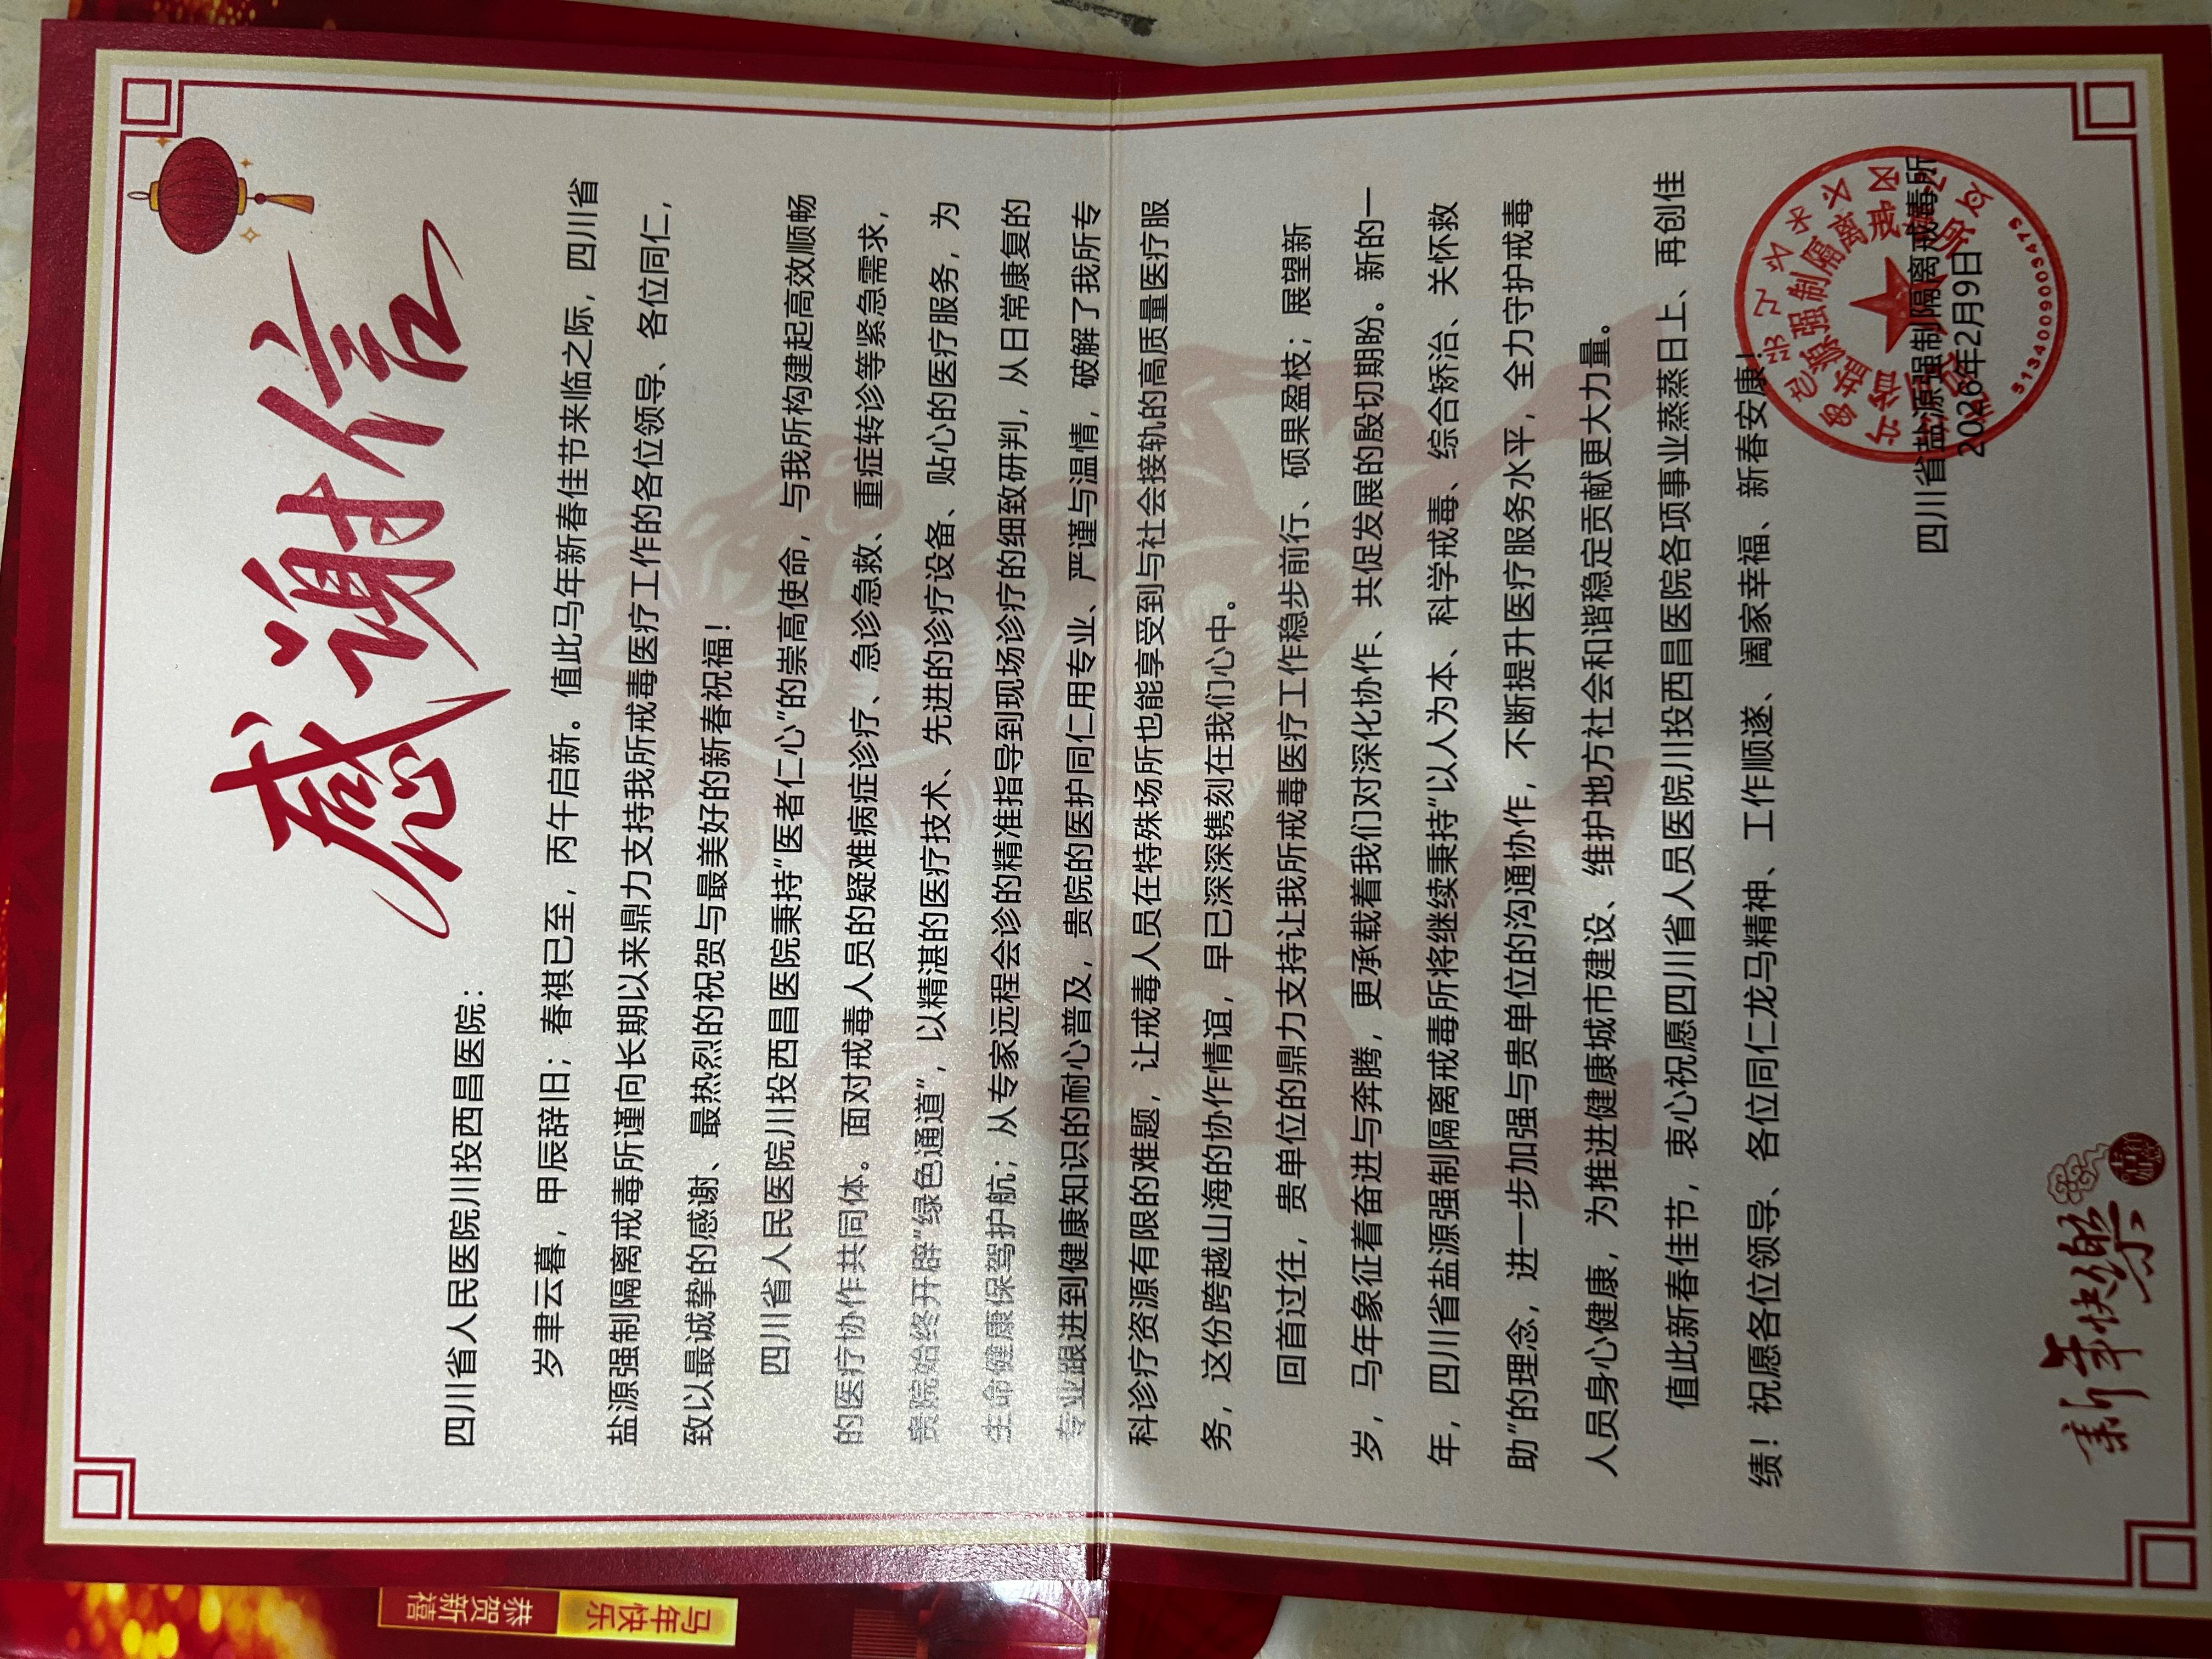 感谢信
四川省人民医院川投西昌医院：
岁聿云暮，甲辰辞旧；春祺已至，丙午启新。值此马年新春佳节来临之际，四川省
盐源强制隔离戒毒所谨向长期以来鼎力支持我所戒毒医疗工作的各位领导、各位同仁，
致以最诚挚的感谢、最热烈的祝贺与最美好的新春祝福！
四川省人民医院川投西昌医院秉持“医者仁心”的崇高使命，与我所构建起高效顺畅
的医疗协作共同体。面对戒毒人员的疑难病症诊疗、急诊急救、重症转诊等紧急需求，
贵院始终开辟“绿色通道”，以精湛的医疗技术、先进的诊疗设备、贴心的医疗服务，为
生命健康保驾护航；从专家远程会诊的精准指导到现场诊疗的细致研判，从日常康复的
专业跟进到健康知识的耐心普及，贵院的医护同仁用专业、严谨与温情，破解了我所专
科诊疗资源有限的难题，让戒毒人员在特殊场所也能享受到与社会接轨的高质量医疗服
务，这份跨越山海的协作情谊，早已深深镌刻在我们心中。
回首过往，贵单位的鼎力支持让我所戒毒医疗工作稳步前行、硕果盈枝；展望新
岁，马年象征着奋进与奔腾，更承载着我们对深化协作、共促发展的殷切期盼。新的一
年，四川省盐源强制隔离戒毒所将继续秉持“以人为本、科学戒毒、综合矫治、关怀救
助”的理念，进一步加强与贵单位的沟通协作，不断提升医疗服务水平，全力守护戒毒
人员身心健康，为推进健康城市建设、维护地方社会和谐稳定贡献更大力量。
值此新春佳节，衷心祝愿四川省人员医院川投西昌医院各项事业蒸蒸日上、再创佳
绩！祝愿各位领导、各位同仁龙马精神、工作顺遂、阖家幸福、新春安康！
四川省盐源强制隔离戒毒所
2026年2月9日
5134009003473
新年快樂
恭贺新禧
马年快乐